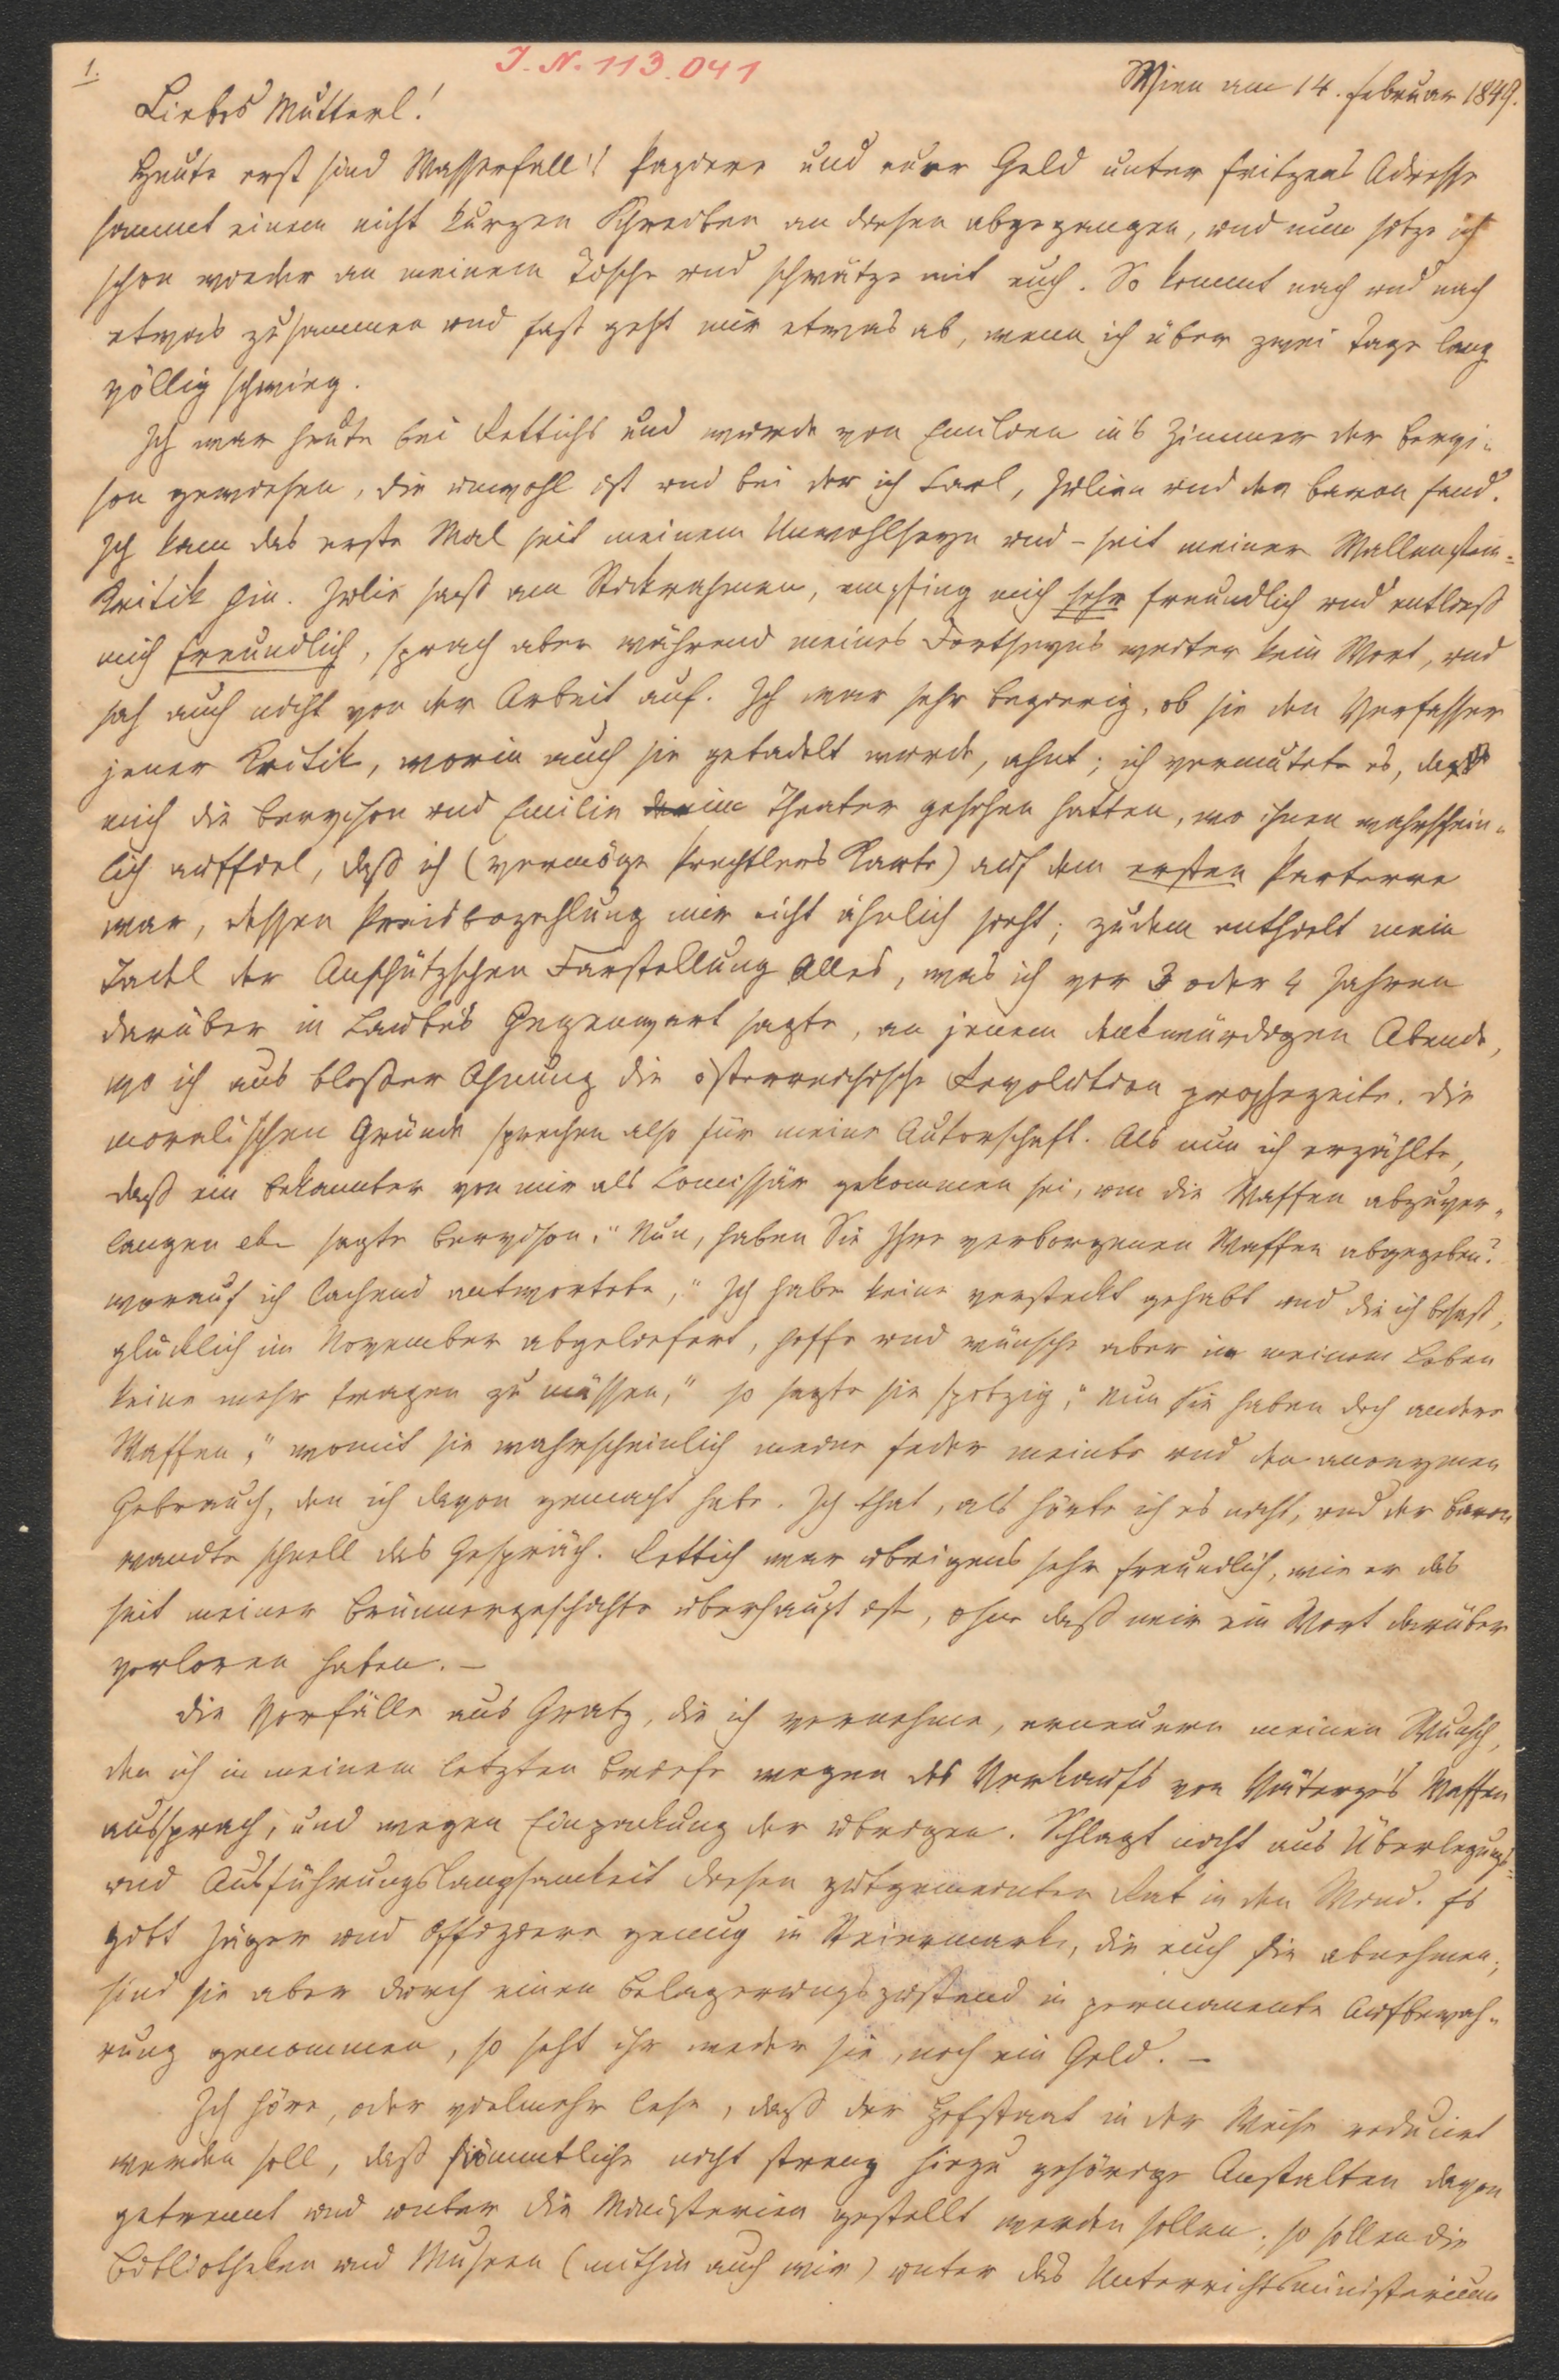 1.
I. N. 113.041
Wien am 14. Februar 1849.
Liebes Mutterl!
Heute erst sind Wasserfall's Papiere und euer Geld unter Fritzens Adresse
sammt einem nicht kurzen Schreiben an diesen abgegangen, und nun sitze ich
schon wieder an meinem Tische und schwätze mit euch. So kommt nach und nach
etwas zusammen und fast geht mir etwas ab, wenn ich über zwei Tage lang
völlig schwieg.
Ich war heute bei Rettichs und wurde von Emilien in's Zimmer der Bervi-
son gewiesen, die unwohl ist und bei der ich Carl, Julien und den Baron fand.
Ich kam das erste Mal seit meinem Unwohlseyn und – seit meiner Wallenstein-
Kritik hin. Julie saß am Stickrahmen, empfing mich sehr freundlich und entließ
mich freundlich, sprach aber während meines Dortseyns weiter kein Wort, und
sah auch nicht von der Arbeit auf. Ich war sehr begierig, ob sie den Verfasser
jener Kritik, worin auch sie getadelt wurde, ahnt; ich vermutete es, daß
mich die Bervison und Emilie im Theater gesehen hatten, wo ihnen wahrschein-
lich auffiel, daß ich (vermöge Prechtlers Karte) auf dem ersten Parterre
war, dessen Preisbezahlung mir nicht ähnlich sieht; zudem enthielt mein
Tadel der Anschützschen Darstellung Alles, was ich vor 3 oder 4 Jahren
darüber in Laube's Gegenwart sagte, an jenem denkwürdigen Abende,
wo ich aus bloßer Ahnung die österreichische Revolution prophezeite. Die
moralischen Gründe sprechen also für meine Autorschaft. Als nun ich erzählte,
daß ein Bekannter von mir als Comissär gekommen sei, um die Waffen abzuver-
langen etc sagte Bervison: "Nun, haben Sie Ihre verborgenen Waffen abgegeben?
worauf ich lachend antwortete, "Ich habe keine versteckt gehabt und die ich besaß,
glücklich im November abgeliefert, hoffe und wünsche aber in meinem Leben
keine mehr tragen zu müssen," so sagte sie spitzig: "Nun Sie haben doch andere
Waffen," womit sie wahrscheinlich meine Feder meinte und den anonymen
Gebrauch, den ich davon gemacht habe. Ich that, als hörte ich es nicht, und der Baron
wandte schnell das Gespräch. Rettich war übrigens sehr freundlich, wie er das
seit meiner Brünnergeschichte überhaupt ist, ohne daß wir ein Wort darüber
verloren haben. –
Die Vorfälle aus Gratz, die ich vernehme, erneuern meinen Wunsch,
den ich in meinem letzten Briefe wegen des Verkaufs von Väterge's Waffen
aussprach, und wegen Einpackung der übrigen. Schlagt nicht aus Überlegungs-
und Ausführungslangsamkeit diesen gutgemeinten Rat in den Wind. Es
gibt Jäger und Offiziere genug in Steiermark, die euch sie abnehmen;
sind sie aber durch einen Belagerungszustand in permanente Aufbewah-
rung genommen, so seht ihr weder sie, noch ein Geld. –
Ich höre, oder vielmehr lese, daß der Hofstaat in der Weise reducirt
werden soll, daß sämmtliche nicht streng hiezu gehörige Anstalten davon
getrennt und unter die Ministerien gestellt werden sollen; so sollen die
Bibliotheken und Museen (mithin auch wir) unter das Unterrichtsministerium